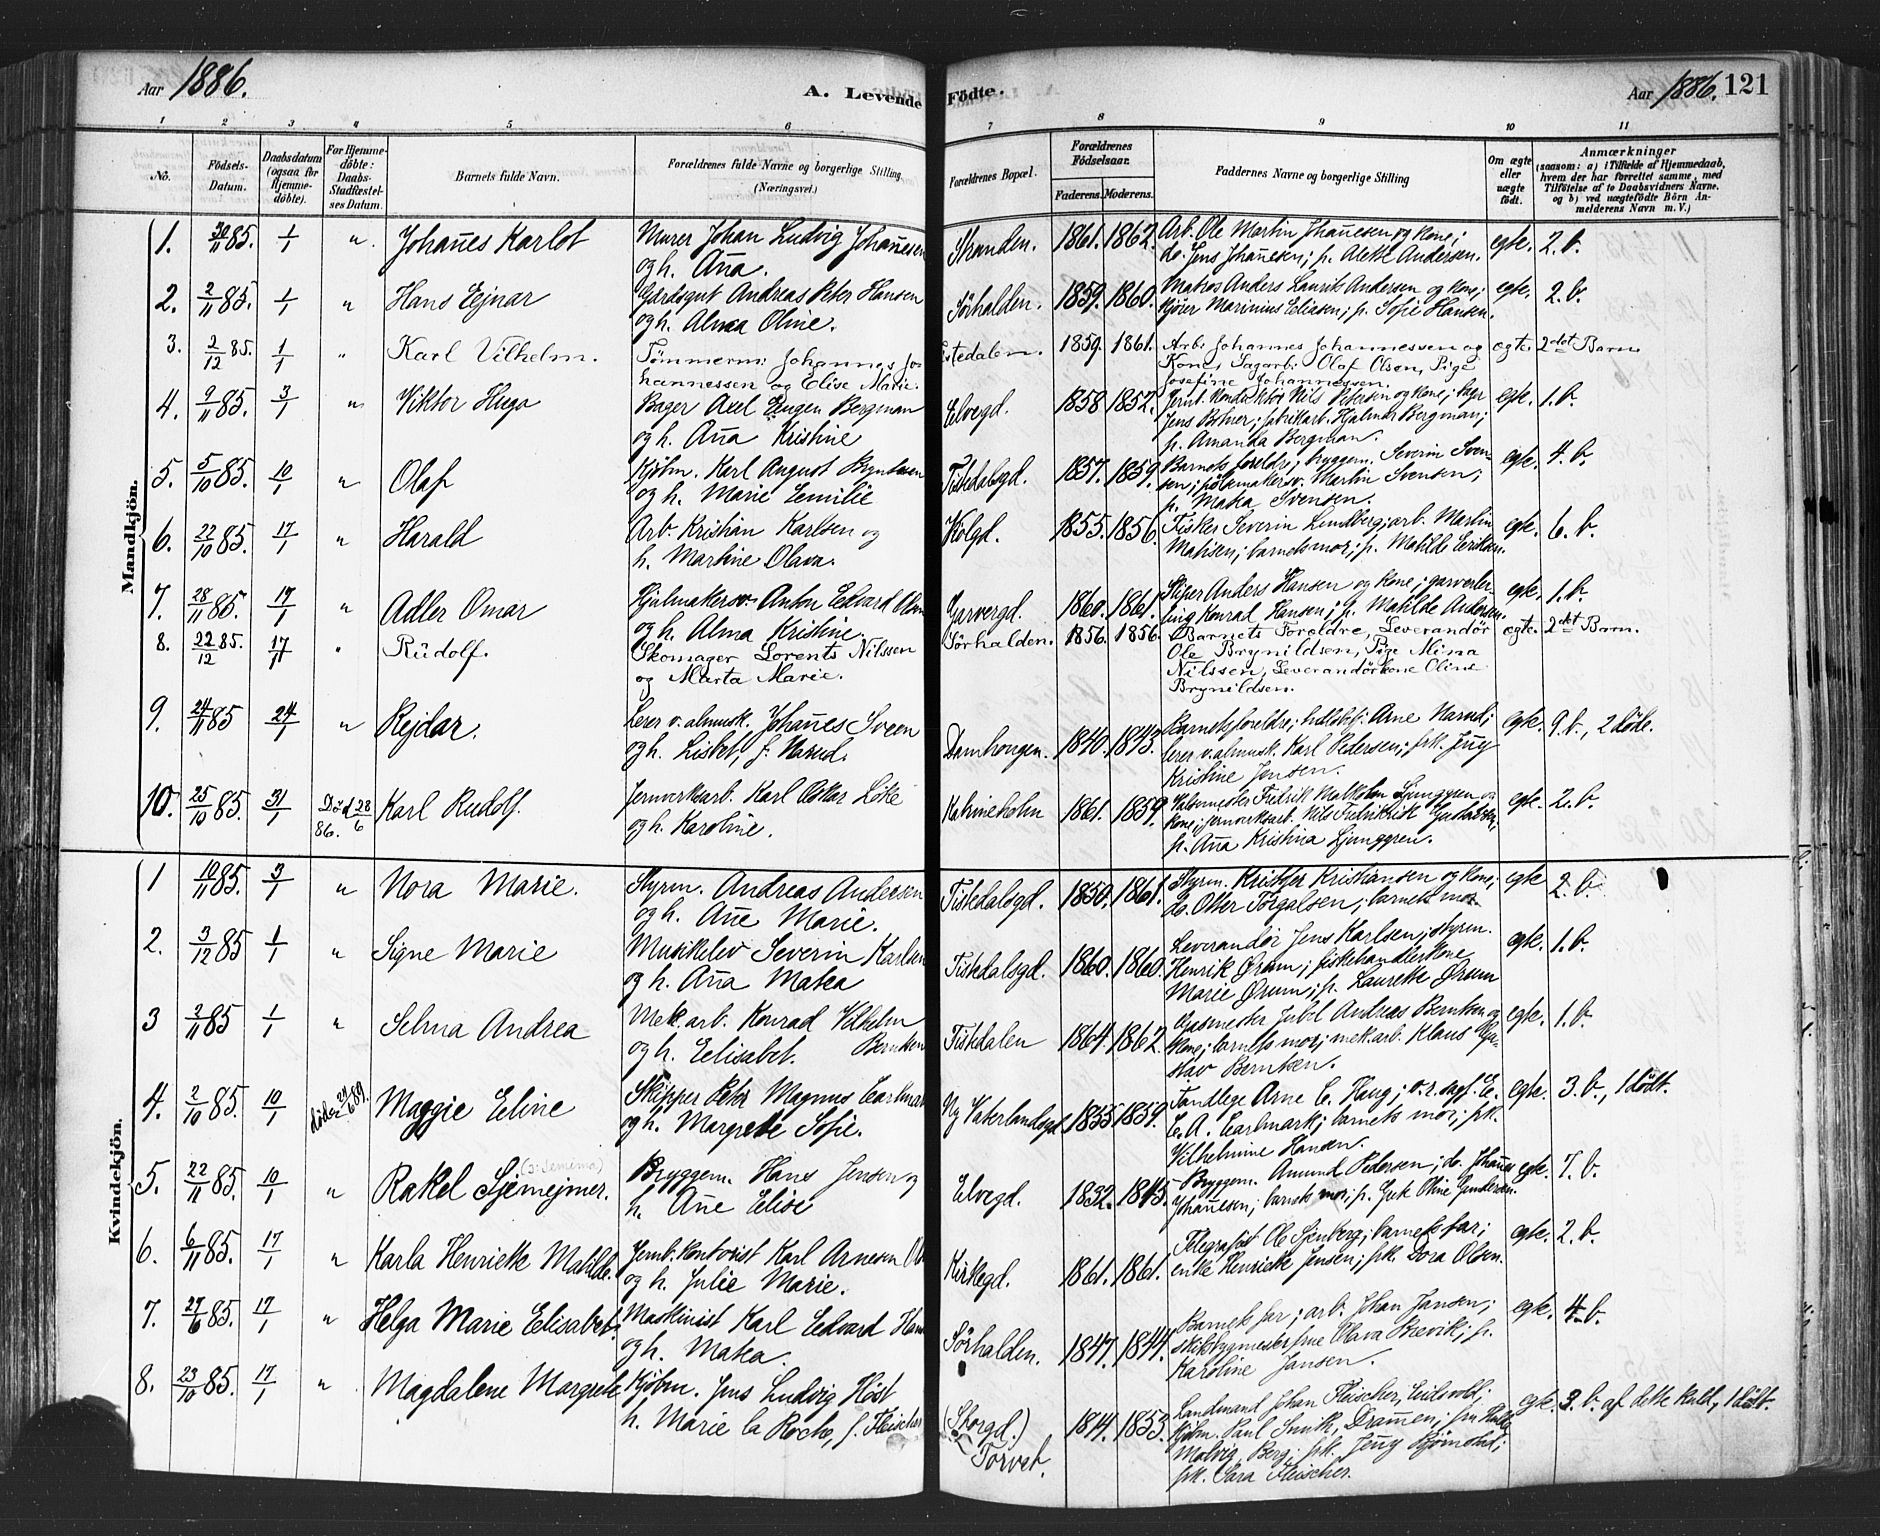 Aar 1886. A. Levende Födte. Aar 1886. 121
1 2 3 4 5 6 7 8 9 10 11
No. Födsels-Datum. Daabsdatum (ogsaa for Hjemmedöbte). For Hjemmedöbte: Daabs-Stadfæstelses Datum. Barnets fulde Navn. Forældrenes fulde Navne og borgerlige Stilling (Næringsvei.) Forældrenes Bopæl. Forældrenes Födselsaar. Faderens. Moderens. Faddernes Navne og borgerlige Stilling Om ægte eller uægte födt. Anmærkninger (saasom: a) i Tilfælde af Hjemmedaab, hvem der har forrettet samme, med Tilföielse af to Daabsvidners Navne. og b) ved uægtefödte Börn Anmelderens Navn m. V.)
Mandkjön.
1. 30/11 85. 1/1 " Johañes Karlot Murer Johan Ludvig Johañesen
og h. Aña. Stranden. 1861. 1862. Arb. Ole Martin Johañesen og kone;
do. Jens Johañesen; p. Alette Andersen. egte. 2. b.
2. 2/11 85. 1/1 " Hans Ejnar Gårdsgut Andreas Peter Hansen
og h. Alma Oline. Sørhalden. 1859. 1860. Matros Anders Laurits Andersen og kone;
kjører Marinius Eliasen; p. Sofie Hansen. egte. 2. b.
3. 2/12 85. 1/1 " Karl Vilhelm. Tömmerm: Johannes Jo-
hannessen og Elise Marie. 1859. 1861. Arb. Johannes Johannessen og
Kone, Sagarb. Olaf Olsen, Pige
Josefine Johannessen. egte. 2det Barn
4. 9/11 85. 3/1 " Viktor Hugo Bager Axel Eugen Bergman
og h. Aña Kristine Elvegd. 1858 1852. Jernb. konduktør Nils Petersen og kone;
Jens fabrikarb. Hjalmar Bergman;
p. Amanda Bergman. egte. 1. b.
5. 5/10 85. 10/1 " Olaf Kjøbm. Karl August
og h. Marie Eemilie Tistedalsgd. 1857. 1859. Barnets foreldre; bryggem. Severin Sven-
sen; Martin Svensen;
p. Matea Svensen. egte. 4. b.
6. 22/10 85. 17/1 " Harald Arb. Kristian Karlsen og
h. Martine Olava. Kølgd. 1855. 1856. Fisker Severin Lundberg; arb. Martin
Matisen; barnets mor; p. Matilde Eeriksen. egte. 6. b.
7. 28/11 85. 17/1 " Adler Omar Hjulmakersv. Anton Edvard Olsen
og h. Alma Kristine. Garvergd. 1860. 1861. Skiper Anders Hansen og kone; garverler-
ling Konrad Hansen; p. Matilde Andersen. egte. 1. b.
8. 22/12 85. 17/1 " Rüdolf. Skomager Lorents Nilssen
og Marta Marie. Sörhalden. 1856. 1856. Barnets Foreldre, Leverandör
Ole Brynildsen, Pige Mina
Nilssen, Leverandörkone Oline
Brynildsen. egte. 2det Barn.
9. 24/11 85 24/1 " Rejdar. Lerer v. almusk. Johañes Sveen
og h. Lisbet, f. Narud. Damhougen. 1840. 1843. Barnets foreldre; Arne Narud;
lerer v. almusk. Karl Pedersen; frk. Jeñy
Kristine Jensen. egte. 9. b., 2 döde.
10. 25/10 85. 31/1 Död 28/6 86. Karl Rudolf. Jernverksarb. Karl Oskar Löke
og h. Karoline. Katrineholm 1861. 1859. Valsemester Fredrik Malkolm Ljunggren og
kone; jernverksarb. Nils Fredrik
p. Aña Kristina Ljunggren. egte. 2. b.
Kvindekjön.
1 10/11 85. 3/1 " Nora Marie. Styrm. Andreas Andersen
og h. Añe Marie. Tistedalsgd. 1850. 1861. Styrm. Kristfer Kristiansen og kone;
do. Otter Torgalsen; barnets mor egte 2. b.
2. 3/12 85 1/1 " Signe Marie Musikelev Severin Karlsen
og h. Aña Matea Tistedalsgd. 1860. 1860. Leverandör Jens Karlsen; styrm.
Henrik Ørum; fiskehandlerkone
Marie Ørum; p. Laurette Ørum egte. 1. b.
3 2/11 85 1/1 " Selma Andrea Mek. arb. Konrad Vilhelm
og h. Eelisabet. Berntsen Tistdalen 1864. 1862. Gasmester Andreas Berntsen og
kone; barnets mor; mek. arb. Klaus Gu-
stav Berntsen. egte. 1. b.
4. 2/10 85. 10/1 döde 24/6 89. Maggie Eeline Skipper Peter Magnus Earlmark
og h. Margrete Sofie. Ny Vaterlandsgd 1855 1859. Tandlege Arne E. Haug; o.r. sagf. E.
E. A. Earlmark; barnets mor; frk.
Vilhelmine Hansen. egte. 3. b., 1 dödt.
5. 22/11 85. 10/1 " Rakel Sjemejmer. (ɔ: Jemima) Bryggem. Hans Jensen og
h. Añe Eelise Elvegd. 1832. 1845. Bryggem. Amund Pedersen; do. Johañes
Johañesen; barnets mor; p. Oline Gundersen. egte. 7. b.
6. 6/11 85. 17/1 " Karla Henriette Matilde. Jernb. kontorist Karl Arnesen
og h. Julie Marie. Kirkegd. 1861. 1861. Telegrafist Ole Stenberg; barnets far;
enke Henriette Jensen; frk. Dora Olsen. egte. 2. b.
7. 27/6 85. 17/1 " Helga Marie Elisabet. Maskinist Karl Eedvard
og h. Matea. Sörhalden. 1847. 1844. Barnets far; arb. Johan Jansen;
skibbygmesterfrue Olava Brevik; p.
Karoline Jansen. egte. 4. b.
8. 23/10 85. 17/1 " Magdalene Margrete Kjøbm. Jens Ludvig Høst
h. Marie la Roche, f. Fleischer (Skorgd.)
Torvet. 1844. 1853. Landmand Johan Fleischer, Eidsvold;
kjøbm. Paul Smith, Drammen; fru
Berg; frk. Jeñy Bjørnstad;
frk. Sara Fleischer. egte. 3. b. af dette kuld, 1 dödt.